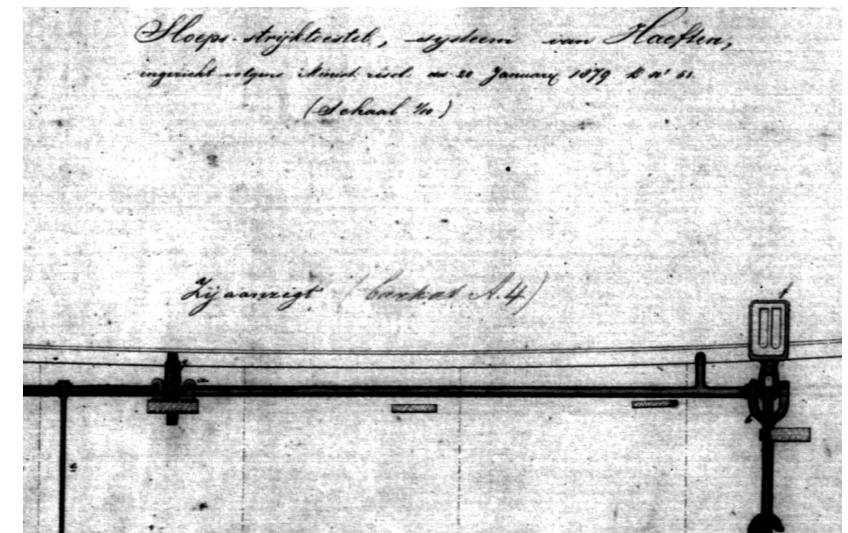 Sloeps-strijktoestel, systeem van Haeften,
ingericht volgens Minist. resol. van 20 January 1879 No 61.
(Schaal 1/10)
Zijaanzigt (barkas A.4)